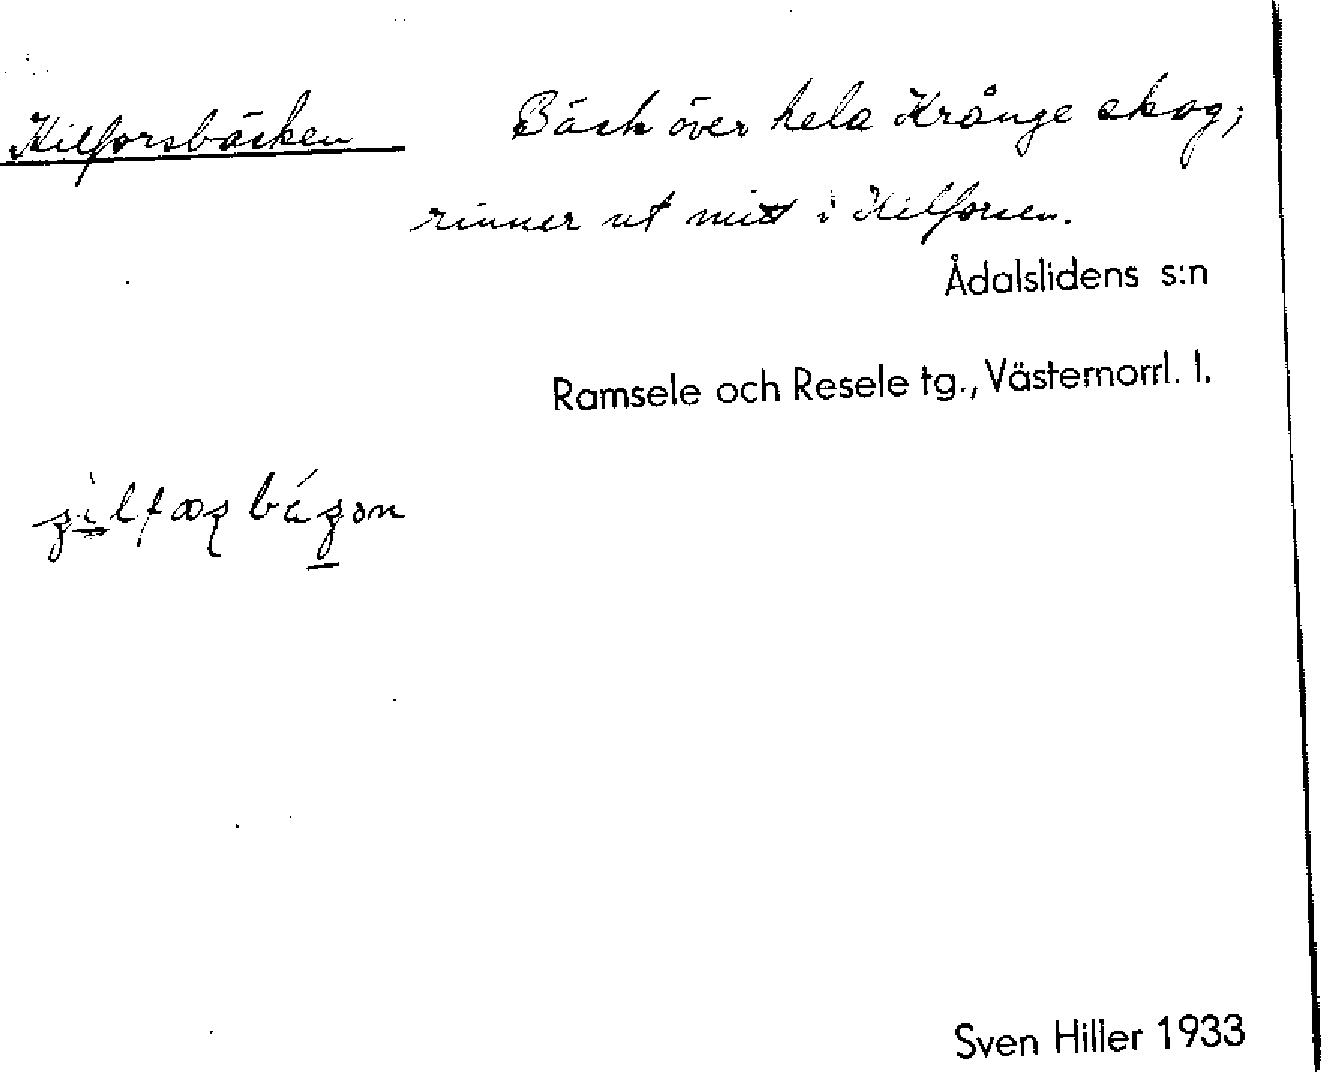 Kilforsbäcken Bäck över hela Krånge skog;
rinner ut mitt i Kilforsen.
Ådalslidens s:n
Ramsele och Resele tg., Västernorrl. l.
Sven Hiller 1933